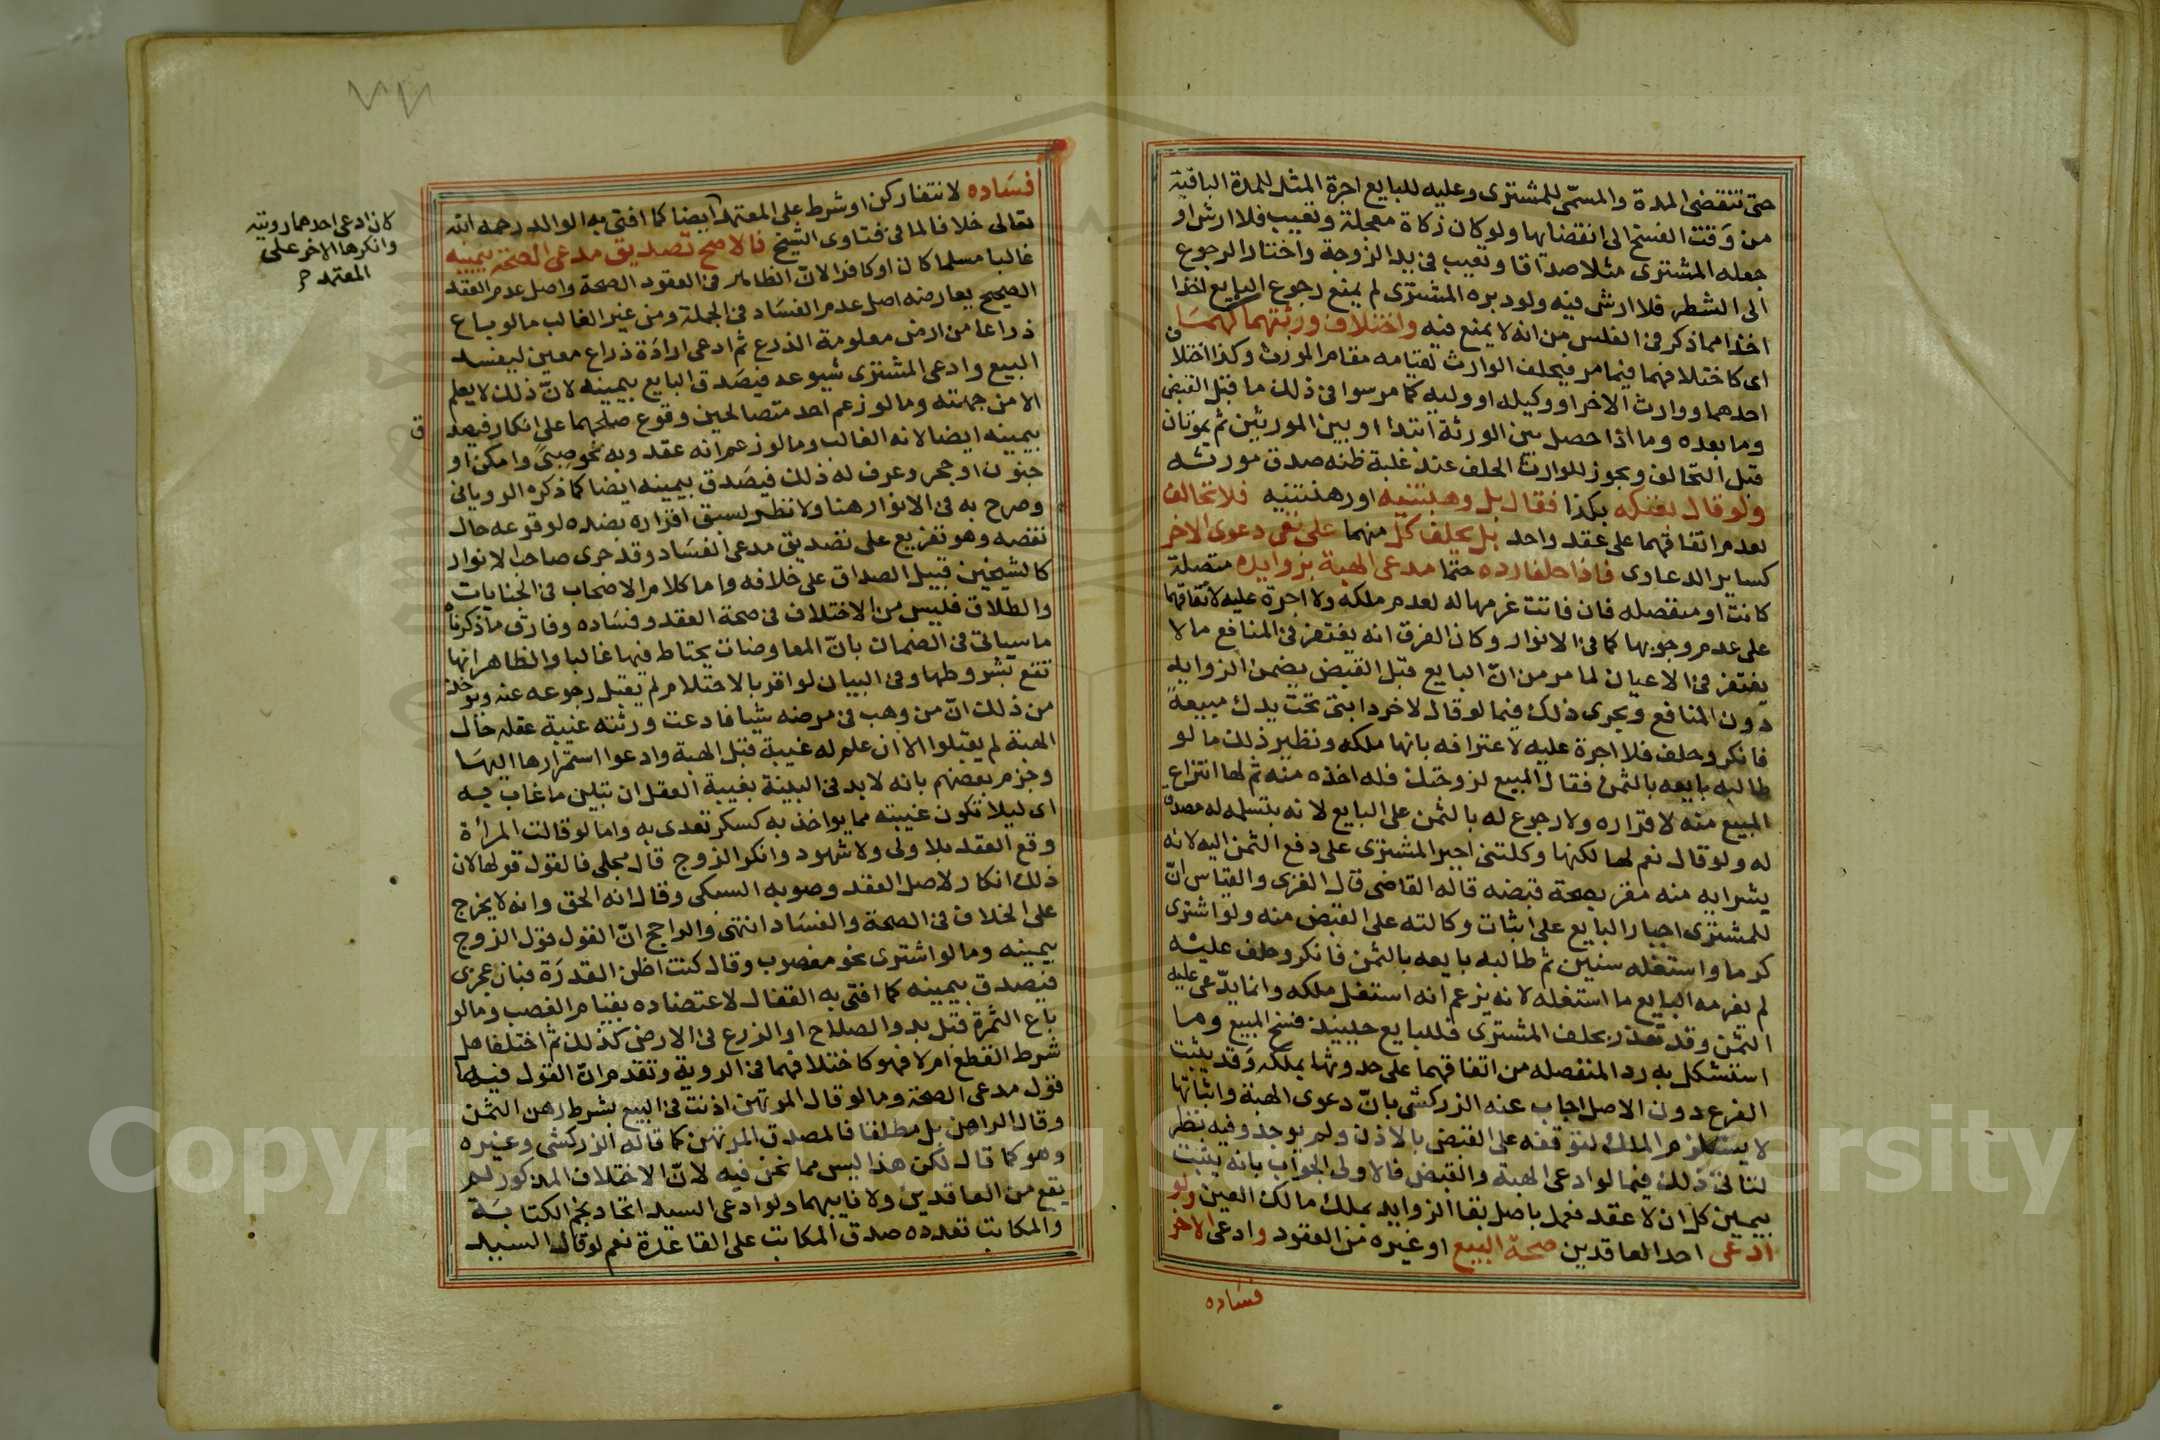 حتى تنقضى المدة والمسمّى للمشترى وعليه للبايع اجرة المثل للمدة الباقية
من وقت الفسخ الى انقضائها ولو كان زكاة معجلة وتعيب فلا ارش او
جعله المشترى مثلا صداقا وتعيب فى يد الزوجة واختار الرجوع
الى الشطر فلا ارش فيه ولو دبره المشترى لم يمنع رجوع البايع اخذا
اخذا مما ذكر فى الفلس من انه لا يمنع فيه واختلاف ورثتهما كهما
اى كاختلافهما فيما مر فيحلف الوارث لقيامه مقام المورث وكذا اختلاف
احدهما ووارث الاخر او وكيله او وليه كما مر سوا فى ذلك ما قبل القبض
وما بعده وما اذا حصل بين الورثة ابتدا او بين المورثين ثم يموتان
قبل التحالف ويجوز للوارث الحلف عند غلبة ظنه صدق مورثه
ولو قال بعتكه بكذا فقال بل وهبتنيه او رهنتنيه فلا تحالف
لعدم اتفاقهما على عقد واحد بل يحلف كل منهما على نفى دعوى الاخر
كساير الدعاوى فاذا حلفا رده حتما مدعى الهبة بزوايده متصلة
كانت او منفصله فان فاتت غرمها له لعدم ملكه ولا اجرة عليه لاتفاقهما
على عدم وجوبها كما فى الانوار وكان الفرق انه يغتفر فى المنافع ما لا
يغتفر فى الاعيان لما مر من انّ البايع قبل القبض يضمن الزوايد
دون المنافع ويجرى ذلك فيما لو قال لاخر دابتى تحت يدك مبيعة
فانكر وحلف فلا اجرة عليه لاعترافه بانها ملكه ونظير ذلك ما لو
طالبه بايعه بالثمن فقال المبيع لزوجتك فله اخذه منه ثم لها انتزاع
المبيع منه لاقراره ولا رجوع له بالثمن على البايع لانه بتسلمه له مصدق
له ولو قال نعم لها لكنها وكلتنى اجبر المشترى على دفع الثمن اليه لانه
بشرايه منه مقر بصحة قبضه قاله القاضى قال الغزى والقياس انّ
للمشترى اجبار البايع على اثبات وكالته على القبض منه ولو اشترى
كرما واستغله سنين ثم طالبه بايعه بالثمن فانكر وحلف عليه
لم يغرمه البايع ما استغله لانه يزعم انه استغل ملكه وانما يدّعى عليه
الثمن وقد تعذر بحلف المشترى فللبايع حينئذ فسخ المبيع وما
استشكل به رد المنفصله من اتفاقهما على حدوثها بملكه وقد يثبت
الفرع دون الاصل اجاب عنه الزركشى بانّ دعوى الهبة واثباتها
لا يستلزم الملك لتوقفه على القبض بالاذن ولم يوجد وفيه نظر
لتاتى ذلك فيما لو ادعى الهبة والقبض فالاولى الجواب بانه يثبت
بيمين كل ان لا عقد فعمل باصل بقا الزوايد بملك مالك العين ولو
ادعى احد العاقدين صحة البيع او غيره من العقود وادعى الاخر
فساده
فساده لانتفا ركن او شرط على المعتمد ايضا كما افتى به الوالد رحمه الله
تعالى خلافا لما فى فتاوى الشيخ فالاصح تصديق مدعى الصحة بيمينه
غالبا مسلما كان او كافرا لانّ الظاهر فى العقود الصحة واصل عدم العقد
الصحيح يعارضه اصل عدم الفساد فى الجملة ومن غير الغالب ما لو باع
ذراعا من ارض معلومة الذرع ثم ادعى ارادة ذراع معين ليفسد
البيع وادعى المشترى شيوعه فيصدق البايع بيمينه لانّ ذلك لا يعلم
الا من جهته وما لو زعم احد متصالحين وقوع صلحهما على انكار فيصدق
بيمينه ايضا لانه الغالب وما لو زعم انه عقد وبه نحو صبىً وامكن او
جنون او حجر وعرف له ذلك فيصدق بيمينه ايضا كما ذكره الرويانى
وصرح به فى الانوار هنا ولا نظر لسبق اقراره بضده لوقوعه حال
نقصه وهو تفريع على تصديق مدعى الفساد وقد جرى صاحب الانوار
كالشيخين قبيل الصداق على خلافه واما كلام الاصحاب فى الجنايات
والطلاق فليس من الاختلاف فى صحة العقد وفساده وفارق ما ذكرناه
ما سياتى فى الضمان بانّ المعاوضات يحتاط فيها غالبا والظاهر انها
تقع بشروطها وفى البيان لو اقر بالاحتلام لم يقبل رجوعه عنه ويوخذ
من ذلك انّ من وهب فى مرضه شيا فادعت ورثته غيبة عقله حال
الهبة لم يقبلوا الا ان علم له غيبة قبل الهبة وادعوا استمرارها اليها
وجزم بعضهم بانه لا بد فى البينة بغيبة العقل ان تبين ما غاب به
اى ليلا تكون غيبته بما يواخذ به كسكر تعدى به واما لو قالت المراة
وقع العقد بلا ولى ولا شهود وانكر الزوج قال مجلى فالقول قولها لان
ذلك انكار لاصل العقد وصوبه السبكى وقال انه الحق وانه لا يخرج
على الخلاف فى الصحة والفساد انتهى والراجح انّ القول قول الزوج
بيمينه وما لو اشترى نحو مغصوب وقال كنت اظن القدرة فبان عجزى
فيصدق بيمينه كما افتى به القفال لاعتضاده بقيام الغصب وما لو
باع الثمرة قبل بدو الصلاح او الزرع فى الارض كذلك ثم اختلفا هل
شرط القطع ام لا فهو كاختلافهما فى الروية وتقدم انّ القول فيهما
قول مدعى الصحة وما لو قال المرتهن اذنت فى البيع بشرط رهن الثمن
وقال الراهن بل مطلقا فالمصدق المرتهن كما قاله الزركشى وغيره
وهو كما قال لكن هذا ليس مما نحن فيه لانّ الاختلاف المذكور لم
يقع من العاقدين ولا نايبهما ولو ادعى السيد اتحاد نجم الكتابة
والمكاتب تعدده صدق المكاتب على القاعدة نعم لو قال السيد
كان ادعى احدهما رويته
وانكرها الاخر على
المعتمد
Copyright © King Saud University